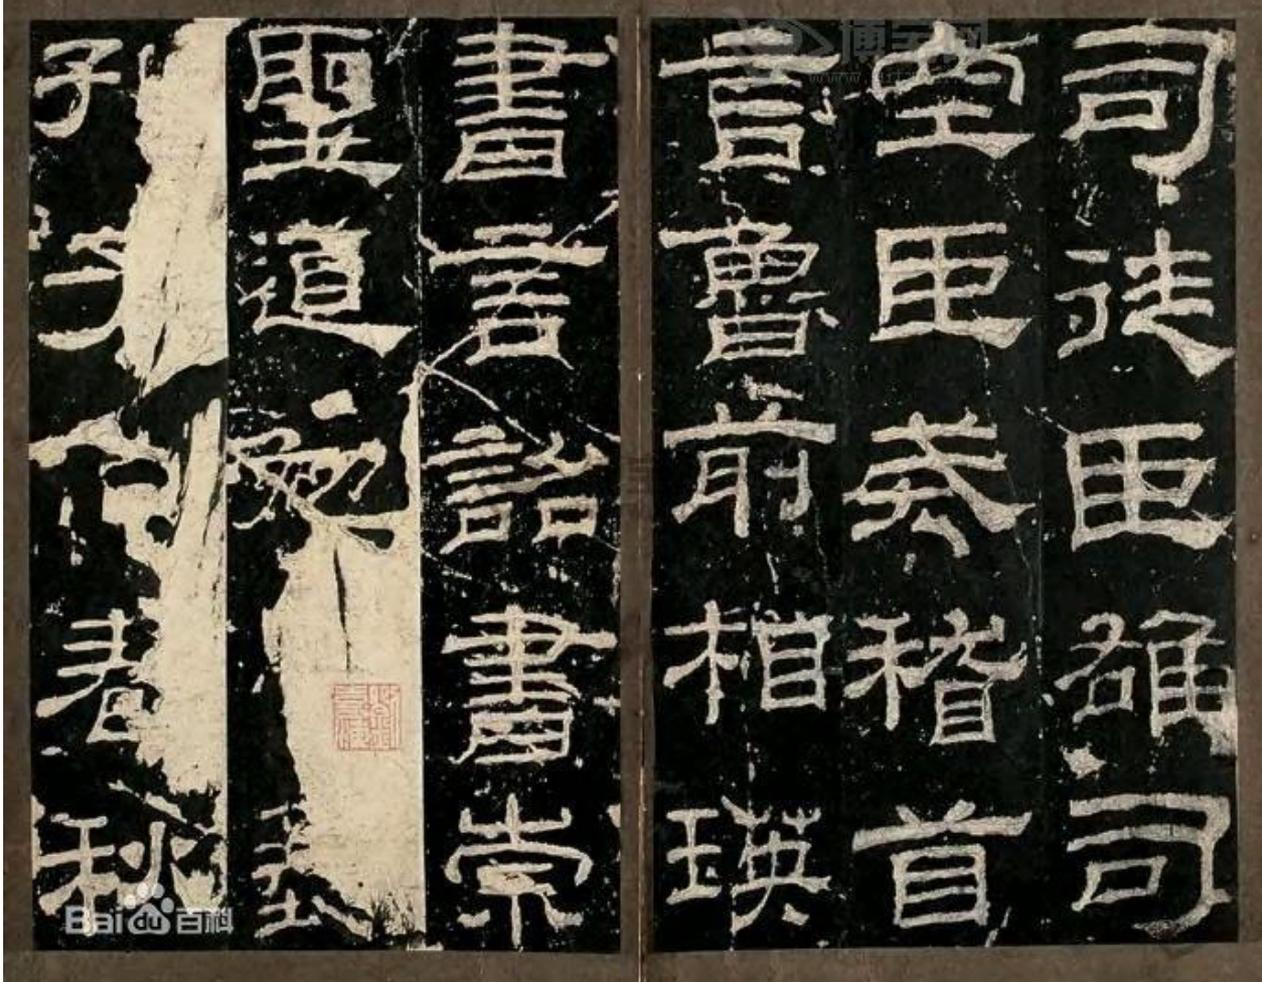 司徒臣雄司
空臣戒稽首
言魯前相瑛
書言詔書崇
聖道勉埶
孔子作春秋
Bai百科